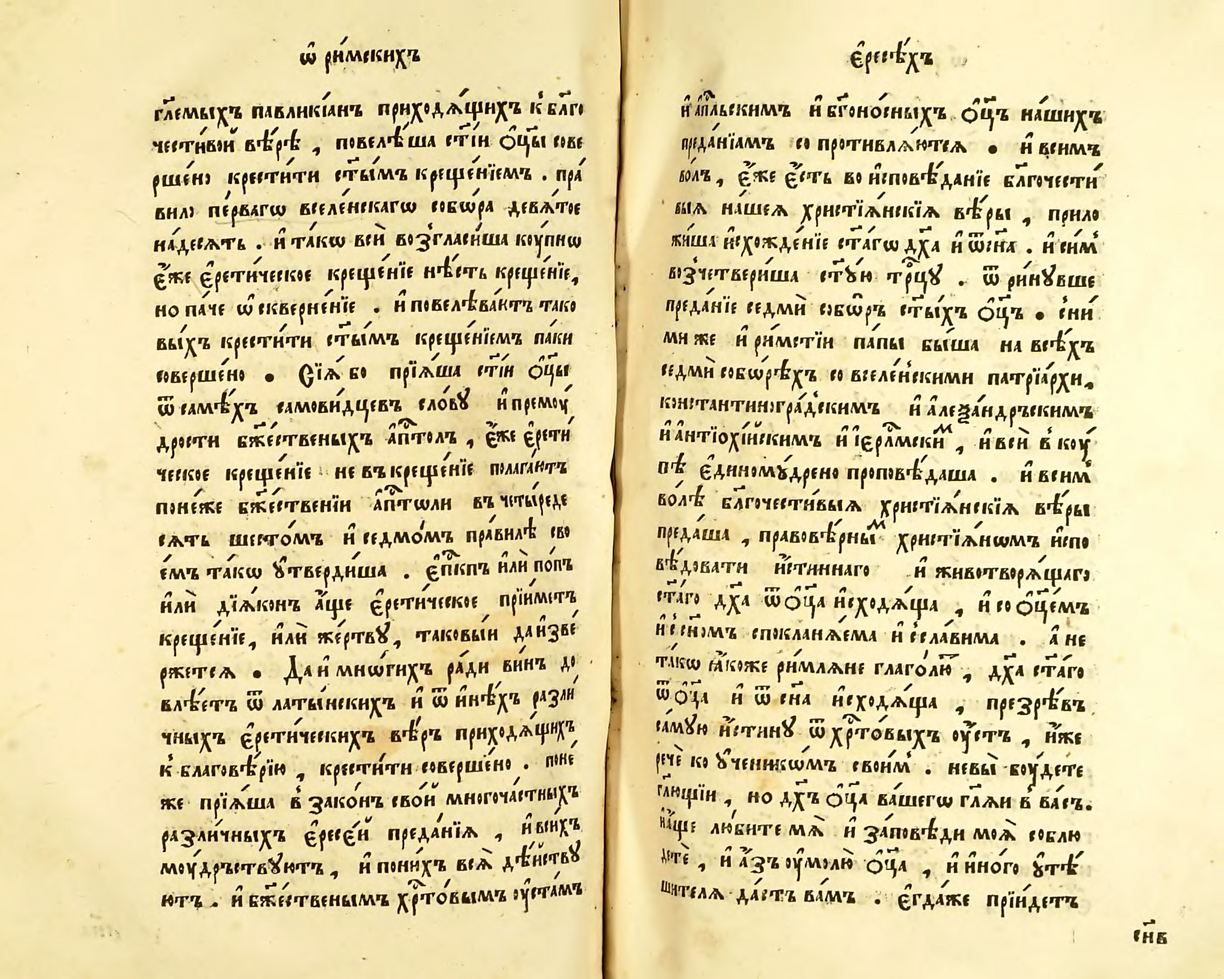 ѡ҆ ри́мскихъ
гл҃емыхъ павликїа́нъ приходѧ́щихъ к̾ бл҃го
чести́вой вѣ́рѣ , повелѣ́ша ст҃і́и ѻ҆ц҃ы̀ сове
рше́но крести́ти ст҃ы́мъ креще́нїемъ . пра́
вило пе́рвагѡ вселе́нскагѡ собѡ́ра девѧ́тое
на́десѧть . и҆ та́кѡ всѝ возгласи́ша коу́пнѡ
є҆́же є҆рети́ческое креще́нїе нѣ́сть креще́нїе,
но па́че ѡ҆скверне́нїе . и҆ повелѣва́ютъ тако
вы́хъ крести́ти ст҃ы́мъ креще́нїемъ па́ки
соверше́но • Сїѧ̀ бо прїѧ́ша ст҃і́и ѻ҆ц҃ы̀
ѿ самѣ́хъ самови́дцевъ сло́вꙋ и҆ премоу́
дрости бж҃е́ственыхъ а҆пⷭ҇толъ , є҆́же є҆рети́
ческое креще́нїе не въ креще́нїе полага́ютъ
поне́же бж҃е́ственїи а҆пⷭ҇толи въ четы́реде
сѧть шесто́мъ и҆ седмо́мъ пра́вилѣ сво
е́мъ та́кѡ ᲂу҆тверди́ша . є҆пⷭ҇кпъ и҆лѝ по́пъ
и҆лѝ дїѧ́конъ а҆́ще є҆рети́ческое прїи́метъ
креще́нїе, и҆лѝ же́ртвꙋ, таковы́и да изве́
ржетсѧ • Да и҆ мно́гихъ ра́ди ви́нъ до
влѣ́етъ ѿ латы́нскихъ и҆ ѿ и҆нѣ́хъ разли́
чныхъ є҆рети́ческихъ вѣ́ръ приходѧ́щихъ
к̾ благовѣ́рїю , крести́ти соверше́но . поне́
же прїѧ́ша в̾ зако́нъ сво́й многоча́стныхъ
разли́чныхъ є҆ресе́й преда́нїѧ , и҆ в си́хъ
моу́дръствꙋютъ , и҆ по ни́хъ всѧ̀ дѣ́йствꙋ
ютъ . и҆ бж҃е́ственымъ хрⷭ҇то́вымъ оу҆ста́мъ
є҆ресѣ́хъ
и҆ а҆пⷭ҇льскимъ и҆ бг҃оно́сныхъ ѻ҆ц҃ъ на́шихъ
преда́нїамъ сопротивлѧ́ютсѧ • и҆ всимъ
во́лъ , є҆́же є҆́сть во и҆сповѣ́данїе бл҃гочести́
выѧ на́шеѧ христїѧ́нскїѧ вѣ́ры , прило
жи́ша и҆схожде́нїе ст҃а́гѡ дх҃а и҆ ѿ сн҃а . и҆ си́м̾
возчетвери́ша ст҃ꙋ́ю трⷪ҇цꙋ . ѿринꙋ́вше
преда́нїе седмѝ собѡ́ръ ст҃ы́хъ ѻ҆ц҃ъ • с ни́
ми же и҆ ри́мстїи па́пы бы́ша на всѣ́хъ
седмѝ собѡ́рѣхъ со вселе́нскими патрїа́рхи,
константиногра́дскимъ и҆ а҆леѯа́ндръскимъ
и҆ а҆нтїохі́йскимъ и҆ і҆ерⷭ҇ли́мскимъ , и҆ всѝ в̾ коу́
пѣ є҆диномꙋ́дрено проповѣ́даша . и҆ всим̾
во́лѣ бл҃гочести́выѧ христїѧ́нскїѧ вѣ́ры
преда́ша , правовѣ́рнымъ христїѧ́нѡмъ и҆спо
вѣ́довати и҆́стиннаго и҆ животворѧ́щаго
ст҃а́го дх҃а ѿ ѻ҆ц҃а̀ и҆сходѧ́ща , и҆ со ѻ҆ц҃е́мъ
и҆ с сн҃омъ спокланѧ́ема и҆ сла́вима . а҆ не
та́кѡ ꙗ҆́коже ри́млѧне глаго́лютъ , дх҃а ст҃а́го
ѿ ѻ҆ц҃а и҆ ѿ сн҃а и҆сходѧ́ща , презрѣ́въ
са́мꙋю и҆́стинꙋ ѿ хрⷭ҇то́выхъ оу҆́стъ , и҆́же
речѐ ко ᲂу҆ченикѡ́мъ свои́м̾ . не вы̀ боу́дете
гл҃ющїи , но дх҃ъ ѻ҆ц҃а ва́шегѡ гл҃ѧи в̾ ва́съ.
и҆ а҆́ще лю́бите мѧ̀ и҆ за́повѣди моѧ̀ соблю
детѐ , и҆ а҆́зъ оу҆молю̀ ѻ҆ц҃а , и҆ и҆но́го ᲂу҆тѣ́
шителѧ да́стъ ва́мъ . є҆гда́же прїи́детъ
сн҃в